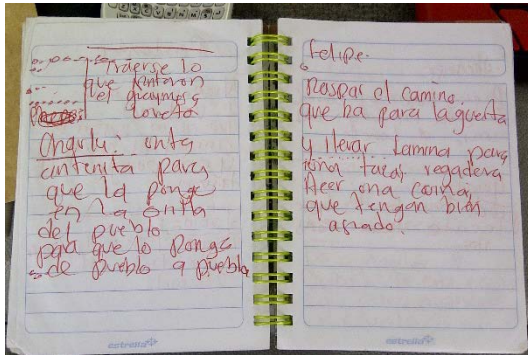 Traerse lo
que pintaron
el guaymas a
loreto
Charly: onta
antenita para
que la ponga
en la orilla
del pueblo
para que lo ponga
de pueblo a pueblo
Felipe.
Raspar el camino.
que ba para la guerta
y llevar lamina para
regadera
Aser una cosina
que tengan bien
asiado.